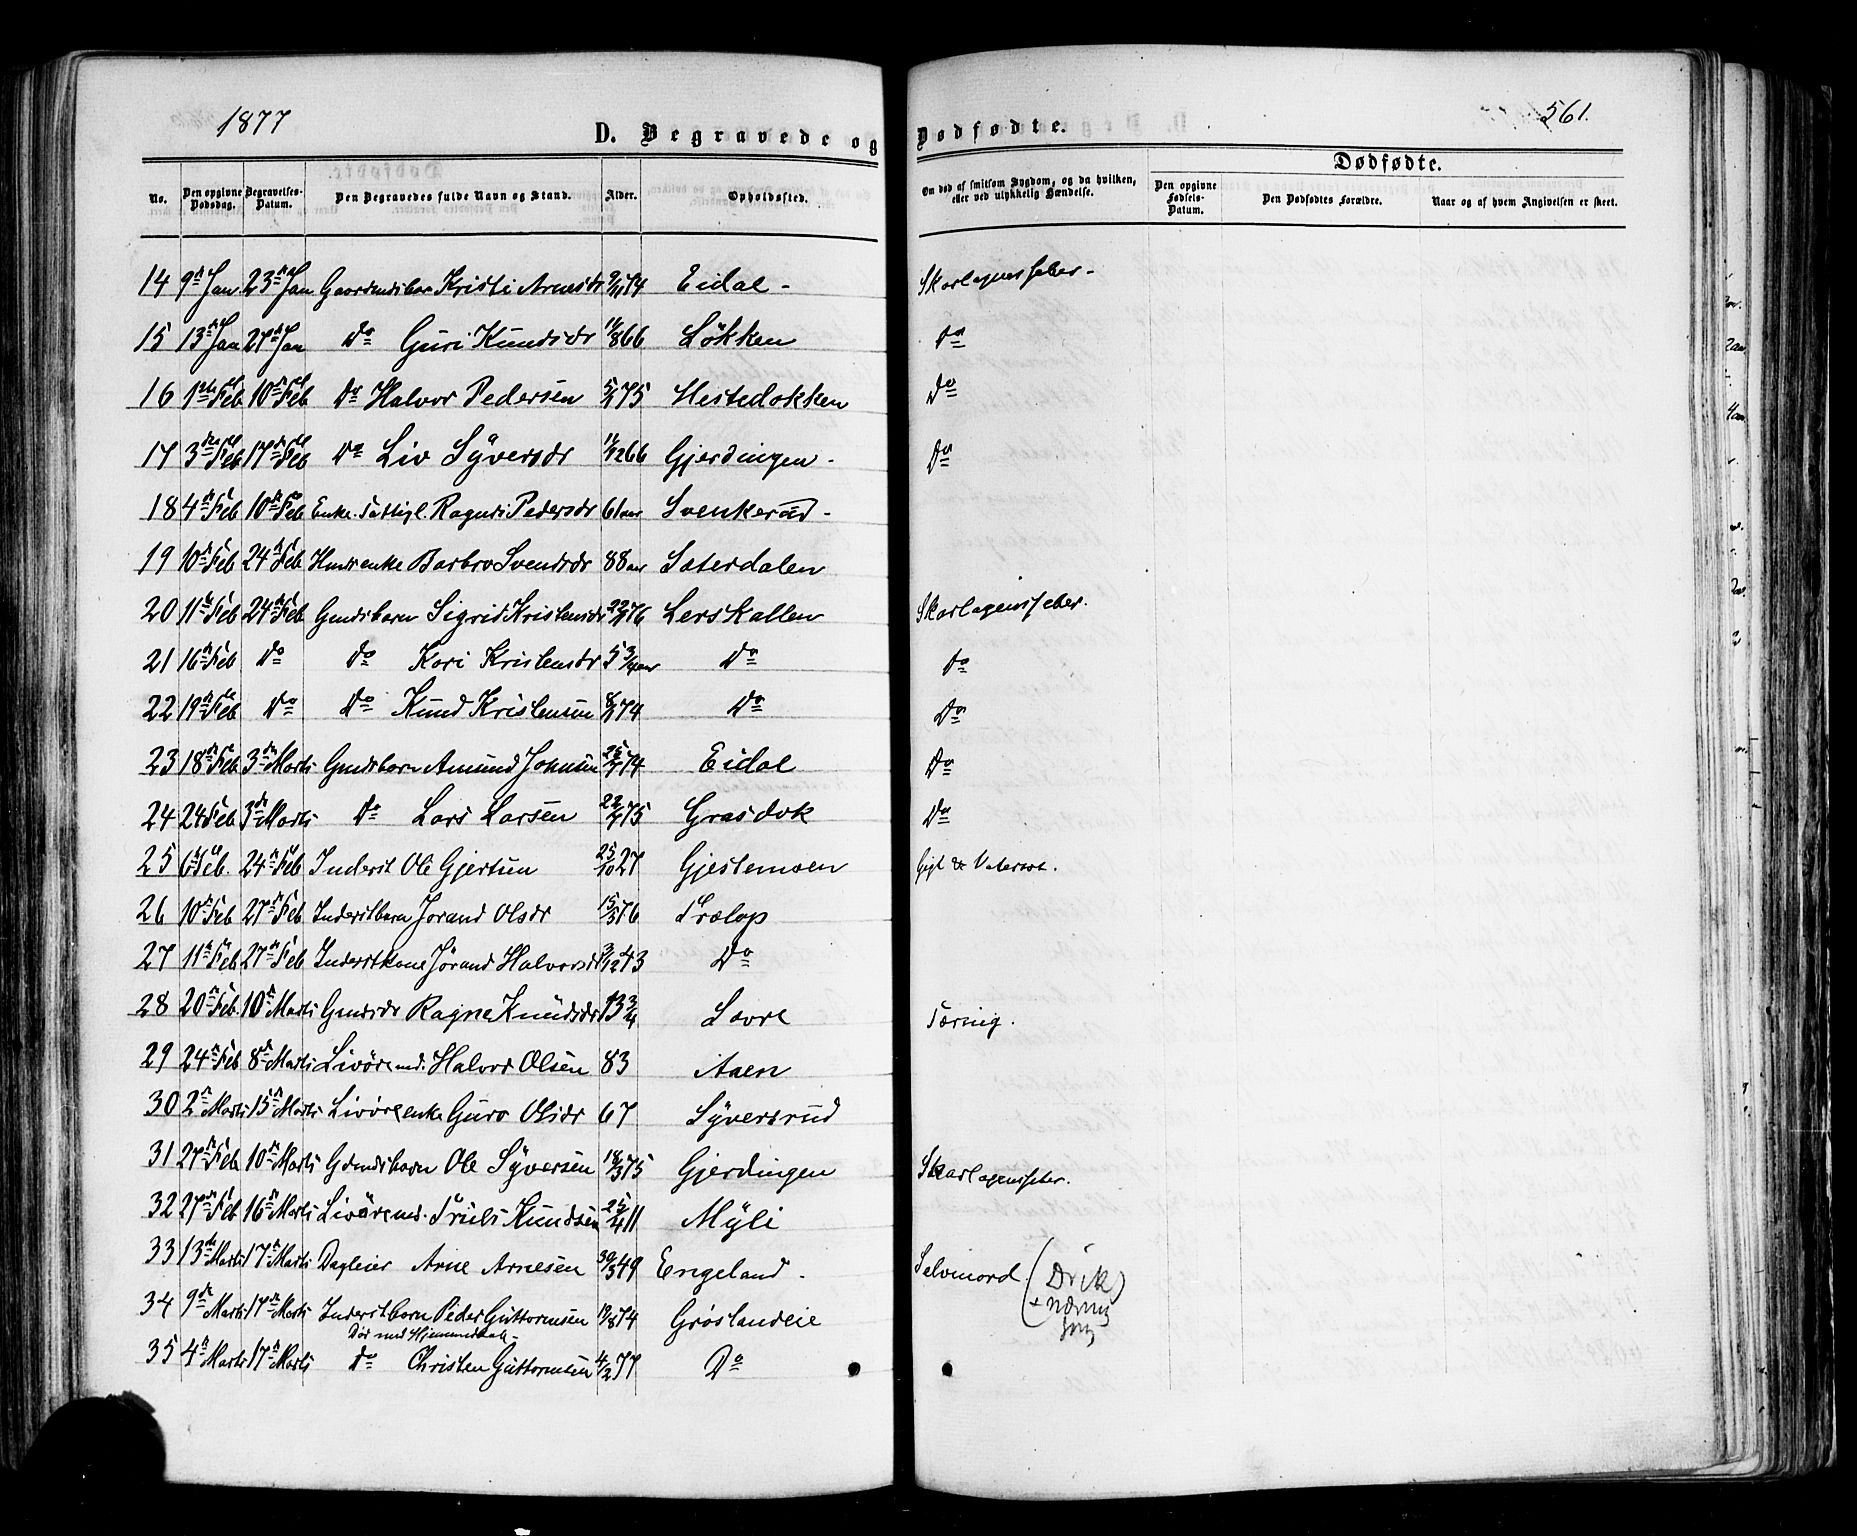 1877
561.
D. Begravede og Dødfødte.
Dødfødte.
No. Den opgivne Dødsdag. Begravelses-Datum. Den Begravedes fulde Navn og Stand. Alder. Opholdssted. Om død af smitsom Sygdom, og da hvilken, eller ved ulykkelig Hændelse. Den opgivne Fødsels-Datum. Den Dødfødtes Forældre. Naar og af hvem Angivelsen er skeet.
14 9de Jan 23de Jan Gaardmdsbar Kristi Arnesdr 74 Eidal - Skarlagensfeber -
15 13de Jan 27de Jan Do Guri Knudsdr 11/8 66 Løkken Do
16 1ste Feb 10de Feb Do Halvor Pedersen 75 Hestedokken Do
17 3die Feb 17de Feb Do Liv Syversdr 11/12 66 Gjerdingen - Do
18 4de Feb 10de Feb Enke. Fattigl. Ragndi Pedersdr 61 aar Svenkerud -
19 10de Feb 24de Feb Hmdsenke Barbro Svendsdr 88 aar Sæterdalen
20 11te Feb 24de Feb Gmdsbarn Sigrid Kristensdr 76 Lerskallen Skarlagensfeber.
21 16de Feb Do Do Kari Kristensdr 5 3/4 aar Do Do
22 19de Feb Do Do Knud Kristensen 74 Do Do
23 18de Feb 3die Marts Gmdsbarn Amund Johnsen 74 Eidal Do
24 24 Feb 3die Marts Do Lars Larsen 75 Grasdok Do
25 6te Feb. 24de Feb Inderst Ole Gjertsen 25/10 27 Gjestemoen Gigt & Vatersot.
26 10de Feb 27de Feb Inderstbarn Jorand Olsdr 15/5 76 Trælop
27 11te Feb 27de Feb Inderstkone Jørand Halvorsdr 3/12 43 Do
28 20de Feb. 10de Marts Gmdsdr Ragne Knudsdr 13 3/4 Savre Tæring.
29 24de Feb 8de Marts Livøremd. Halvor Olsen 83 Aaen
30 2den Marts 15de Marts Livøreenke Guro Olsdr 67 Syversrud
31 27de Feb 10de Marts Gdmdsbarn Ole Syversen 18/3 75 Gjerdingen Skarlagensfeber.
32 27de Feb 16de Marts Livøremd. Truls Knudsen 25/4 11 Myli
33 13de Marts 17de Marts Dagleier Arne Arnesen 30/3 49 Engeland. Selvmord. (Drik
+ Næring
sorg)
34 9de Marts 17de Marts Inderstbarn Peder Guttormsen 19/8 74 Grøslandeie
Død med Hjemmedaab -
35 4de Marts 17de Marts Do Christen Guttormsen 4/2 77 Do